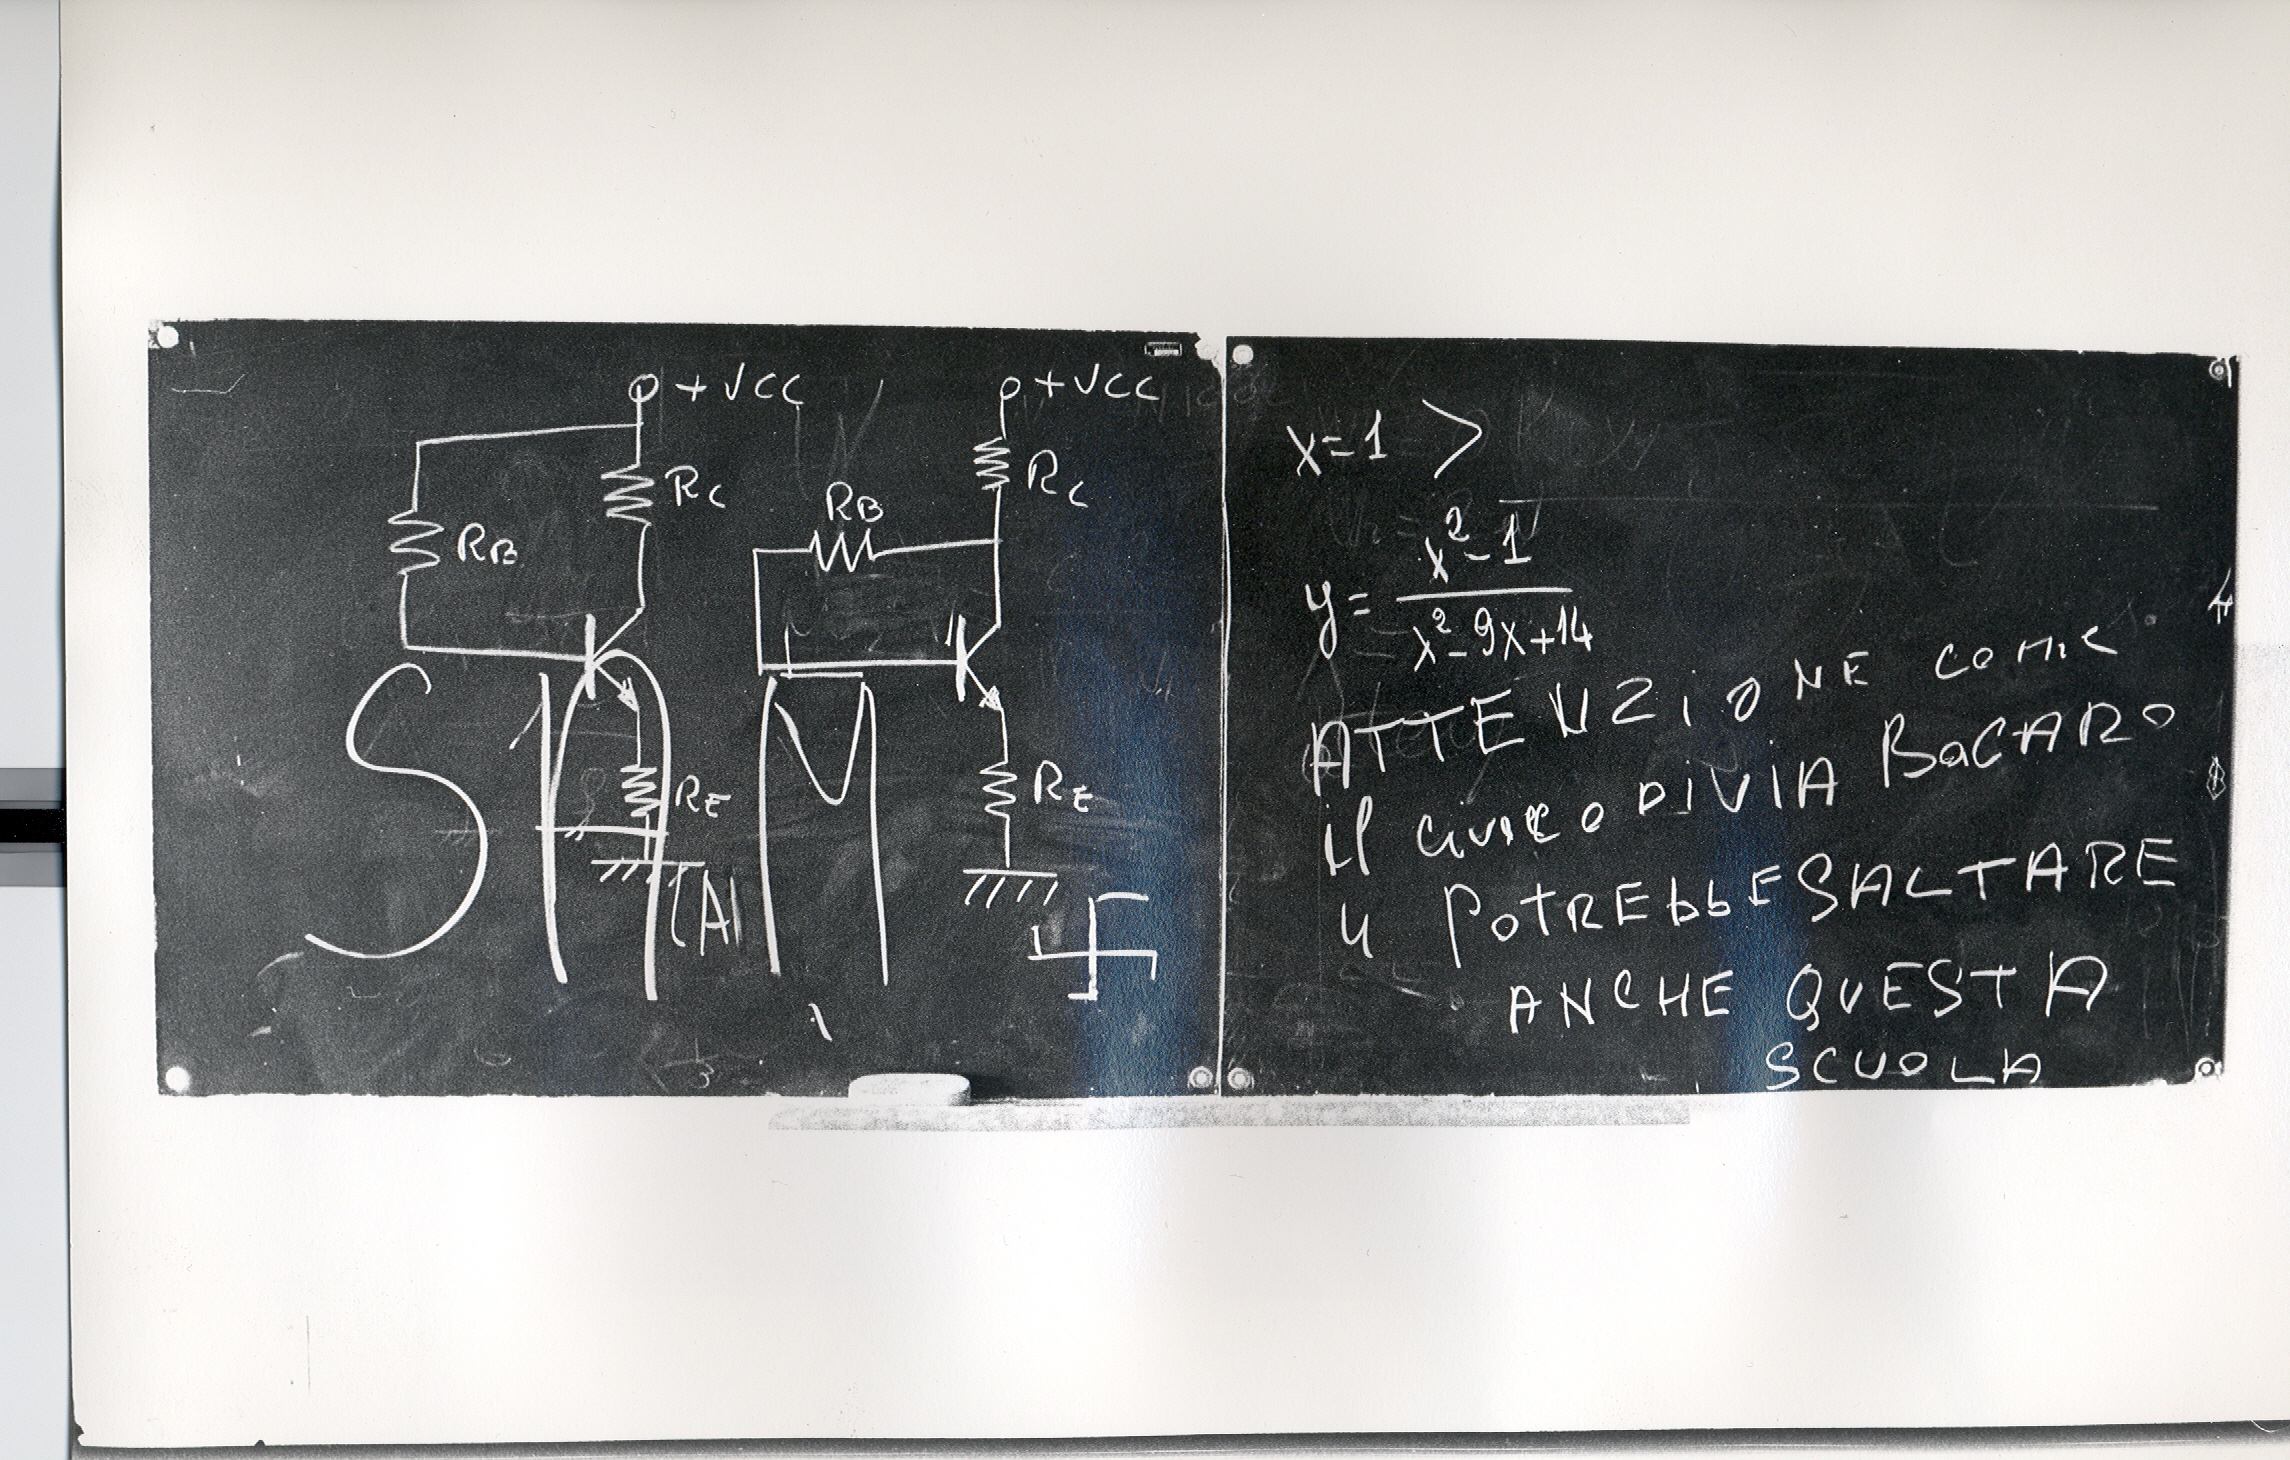 +VCC
RC
RB
RE
+VCC
RC
RB
RE
x=1 >
y= x²-1 / x²-9x+14
ATTENZIONE COME
il CIVICO DI VIA BOCARO
4 POTREbbE SALTARE
ANCHE QUESTA
SCUOLA